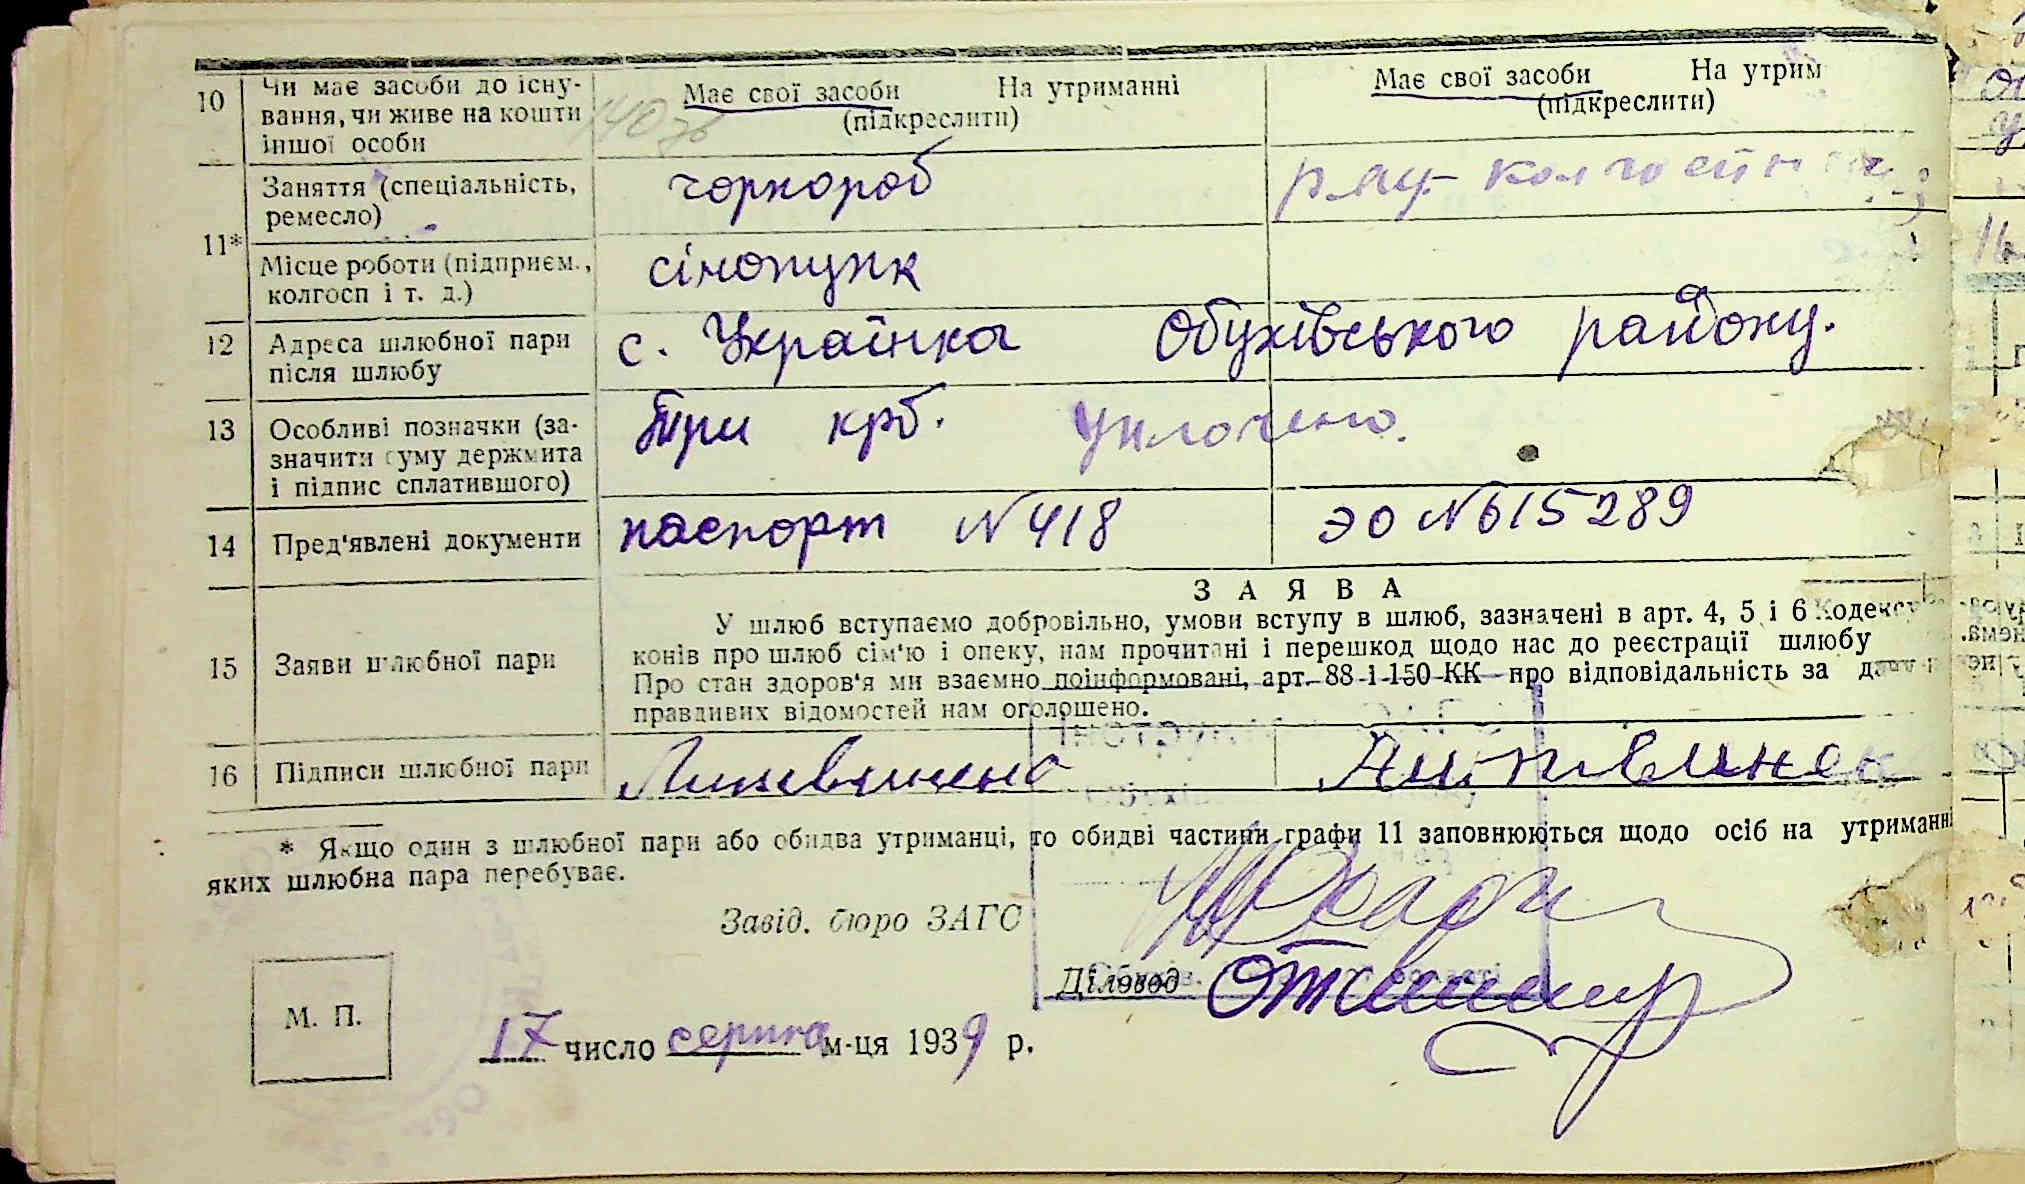 10 Чи має засоби до існу-
вання, чи живе на кошти
іншої особи
Має свої засоби На утриманні
(підкреслити)
Має свої засоби На утрим
(підкреслити)
11* Заняття (спеціальність,
ремесло)
чорнороб
Місце роботи (підприєм.,
колгосп і т. д.)
сінопунк
12 Адреса шлюбної пари
після шлюбу
с. Українка Обухівського району.
13 Особливі позначки (за-
значити суму держмита
і підпис сплатившого)
Три крб. уплочено.
14 Пред'явлені документи
паспорт N 418
ЭО N 615289
15 Заяви шлюбної пари
ЗАЯВА
У шлюб вступаємо добровільно, умови вступу в шлюб, зазначені в арт. 4, 5 і 6 Кодексу
конів про шлюб сім'ю і опеку, нам прочитані і перешкод щодо нас до реєстрації шлюбу
Про стан здоров'я ми взаємно поінформовані, арт. 88 і 150 КК про відповідальність за
правдивих відомостей нам оголошено.
16 Підписи шлюбної пари
* Якщо один з шлюбної пари або обидва утриманці, то обидві частини графи 11 заповнюються щодо осіб на утриманні
яких шлюбна пара перебуває.
Завід. бюро ЗАГС
Діловод
М. П.
17 число серпня м-ця 1939 р.